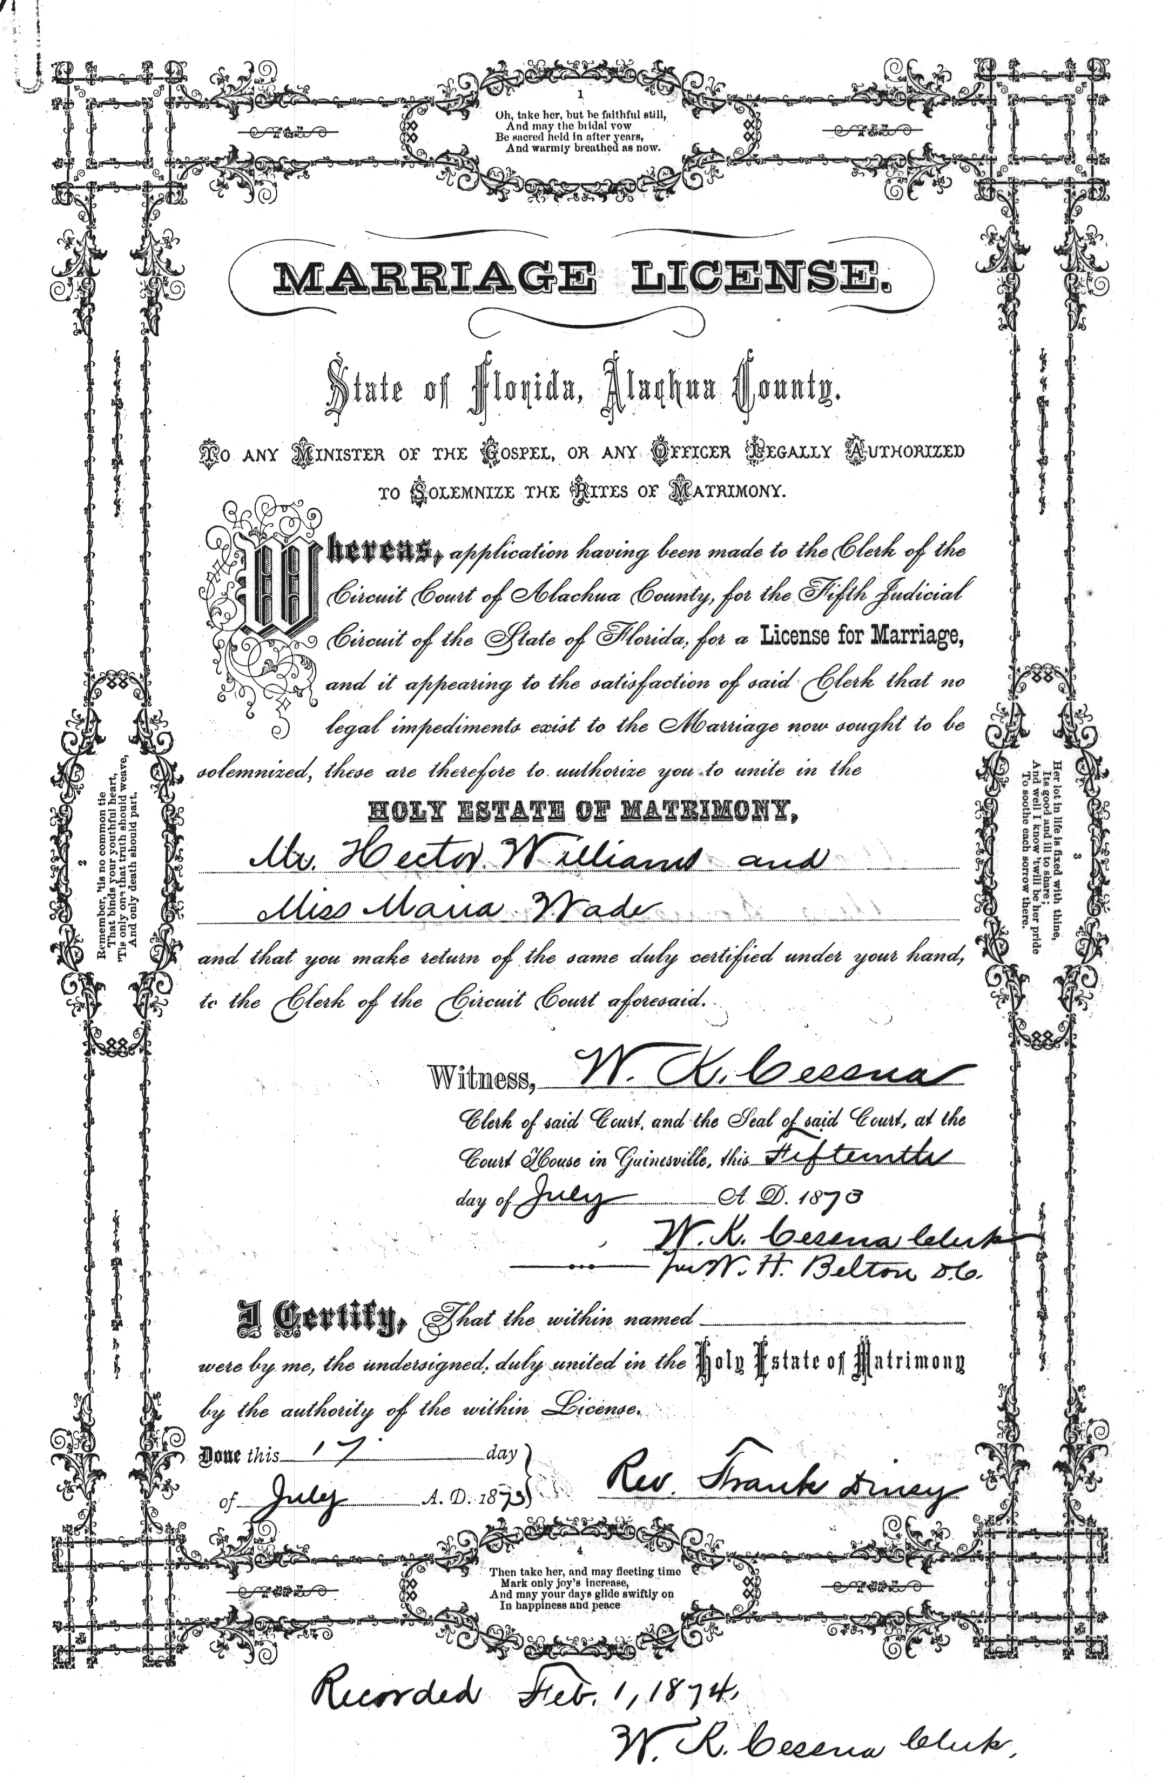 1
Oh, take her, but be faithful still,
And may the bridal vow
Be sacred held in after years,
And warmly breathed as now.
MARRIAGE LICENSE.
State of Florida, Alachua County.
TO ANY MINISTER OF THE GOSPEL, OR ANY OFFICER LEGALLY AUTHORIZED
TO SOLEMNIZE THE RITES OF MATRIMONY.
Whereas, application having been made to the Clerk of the
Circuit Court of Alachua County, for the Fifth Judicial
Circuit of the State of Florida, for a License for Marriage,
and it appearing to the satisfaction of said Clerk that no
legal impediments exist to the Marriage now sought to be
solemnized, these are therefore to authorize you to unite in the
HOLY ESTATE OF MATRIMONY,
Mr. Hector Williams and
Miss Maria Wade
and that you make return of the same duly certified under your hand,
to the Clerk of the Circuit Court aforesaid.
2
Remember, 'tis no common tie
That binds your youthful heart,
'Tis only one that truth should weave,
And only death should part.
3
Her lot in life is fixed with thine,
Its good and ill to share;
And well I know 'twill be her pride
To soothe each sorrow there.
Witness, W. K. Cessna
Clerk of said Court, and the Seal of said Court, at the
Court House in Gainesville, this Fifteenth
day of July A. D. 1873
W. K. Cessna Clerk
per W. H. Belton D.C.
I Certify, That the within named
were by me, the undersigned, duly united in the Holy Estate of Matrimony
by the authority of the within License.
Done this 17 day
of July A. D. 1873
Rev. Frank
4
Then take her, and may fleeting time
Mark only joy's increase,
And may your days glide swiftly on
In happiness and peace
Recorded Feb. 1, 1874,
W. K. Cessna Clerk.